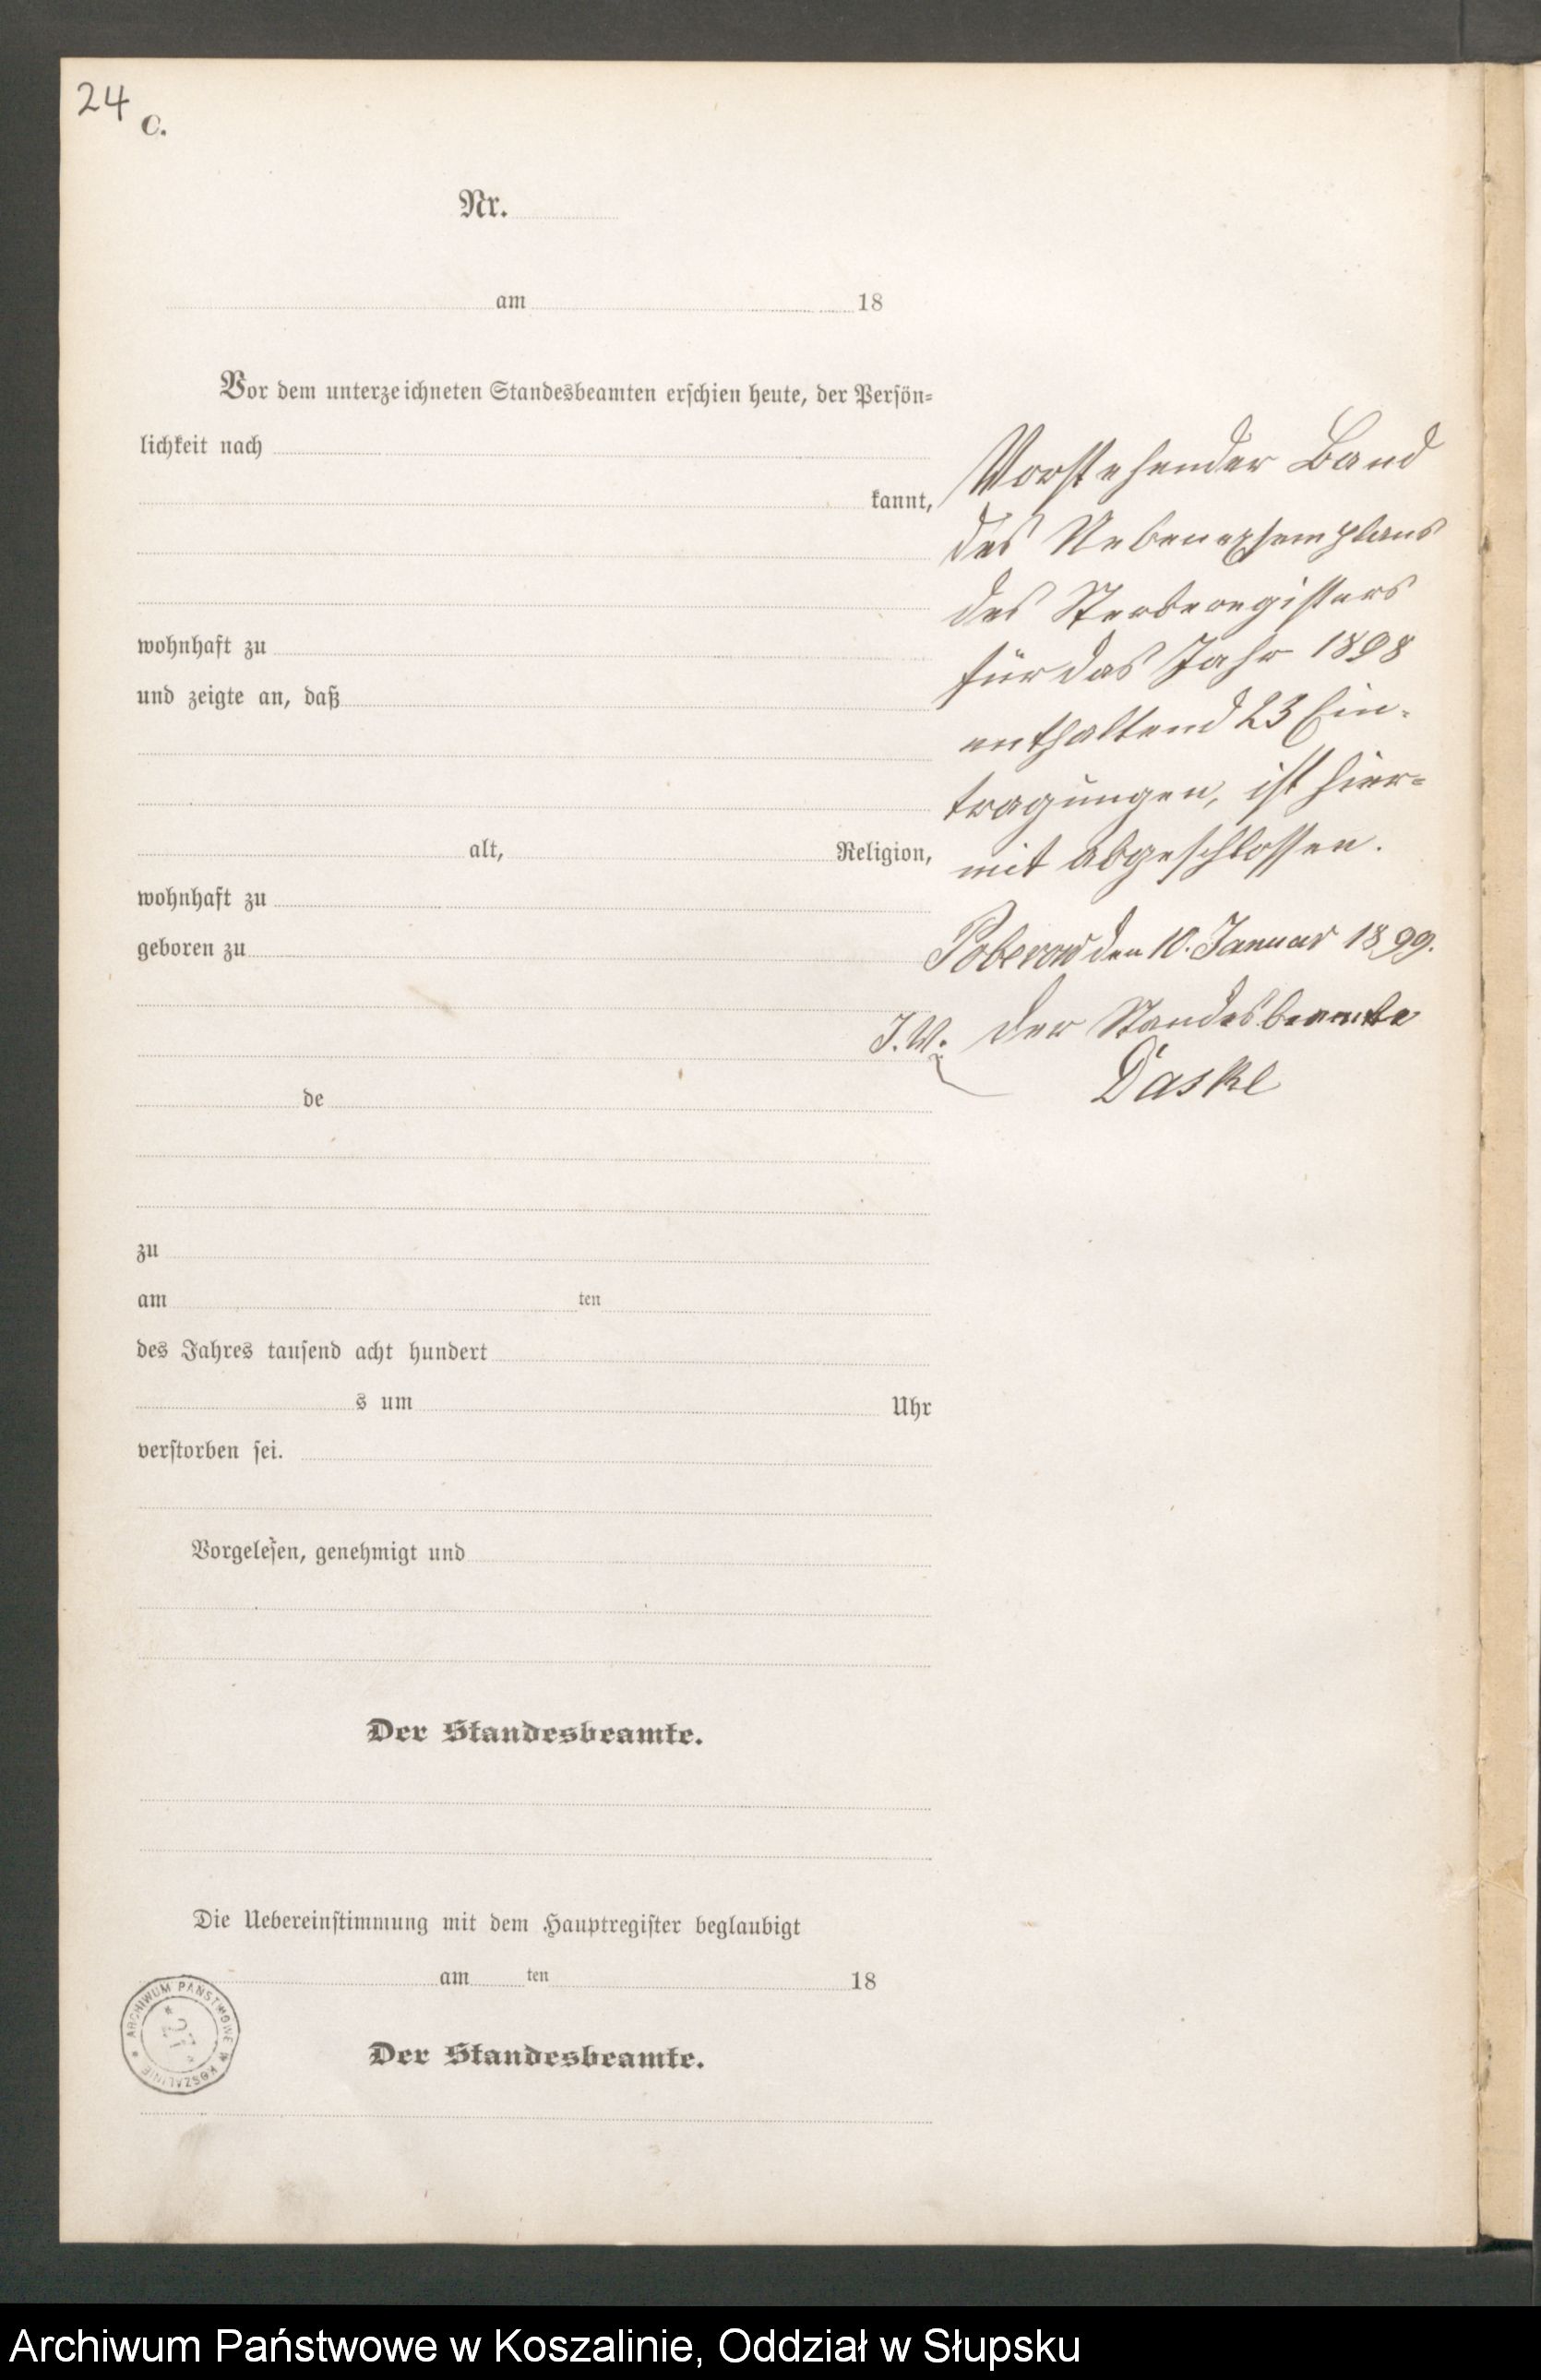 24
C.
Nr.
am 18
Vor dem unterzeichneten Standesbeamten erschien heute, der Persön=
lichkeit nach
kannt,
wohnhaft zu
und zeigte an, daß
alt, Religion,
wohnhaft zu
geboren zu
de
zu
am ten
des Jahres tausend acht hundert
s um Uhr
verstorben sei.
Vorgelesen, genehmigt und
Der Standesbeamte.
Die Uebereinstimmung mit dem Hauptregister beglaubigt
am ten 18
Der Standesbeamte.
Vorstehender Band
des Nebenexemplars
des Sterberegisters
für das Jahr 1898
enthaltend 23 Ein-
tragungen, ist hier=
mit abgeschlossen.
Poberow den 10. Januar 1899.
J.V. Der Standesbeamte
Daske
* ARCHIWUM PAŃSTWOWE W KOSZALINIE
* 27 *
Archiwum Państwowe w Koszalinie, Oddział w Słupsku